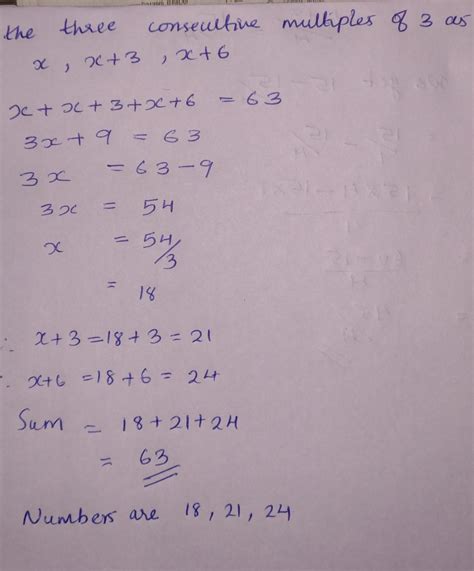 the three conseultive multiples of 3 as
x , x+3 , x+6
x + x + 3 + x + 6 = 63
3x + 9 = 63
3x = 63 - 9
3x = 54
x = 54/3
= 18
∴ x + 3 = 18 + 3 = 21
x+6 = 18 + 6 = 24
Sum = 18 + 21 + 24
= 63
Numbers are 18, 21, 24